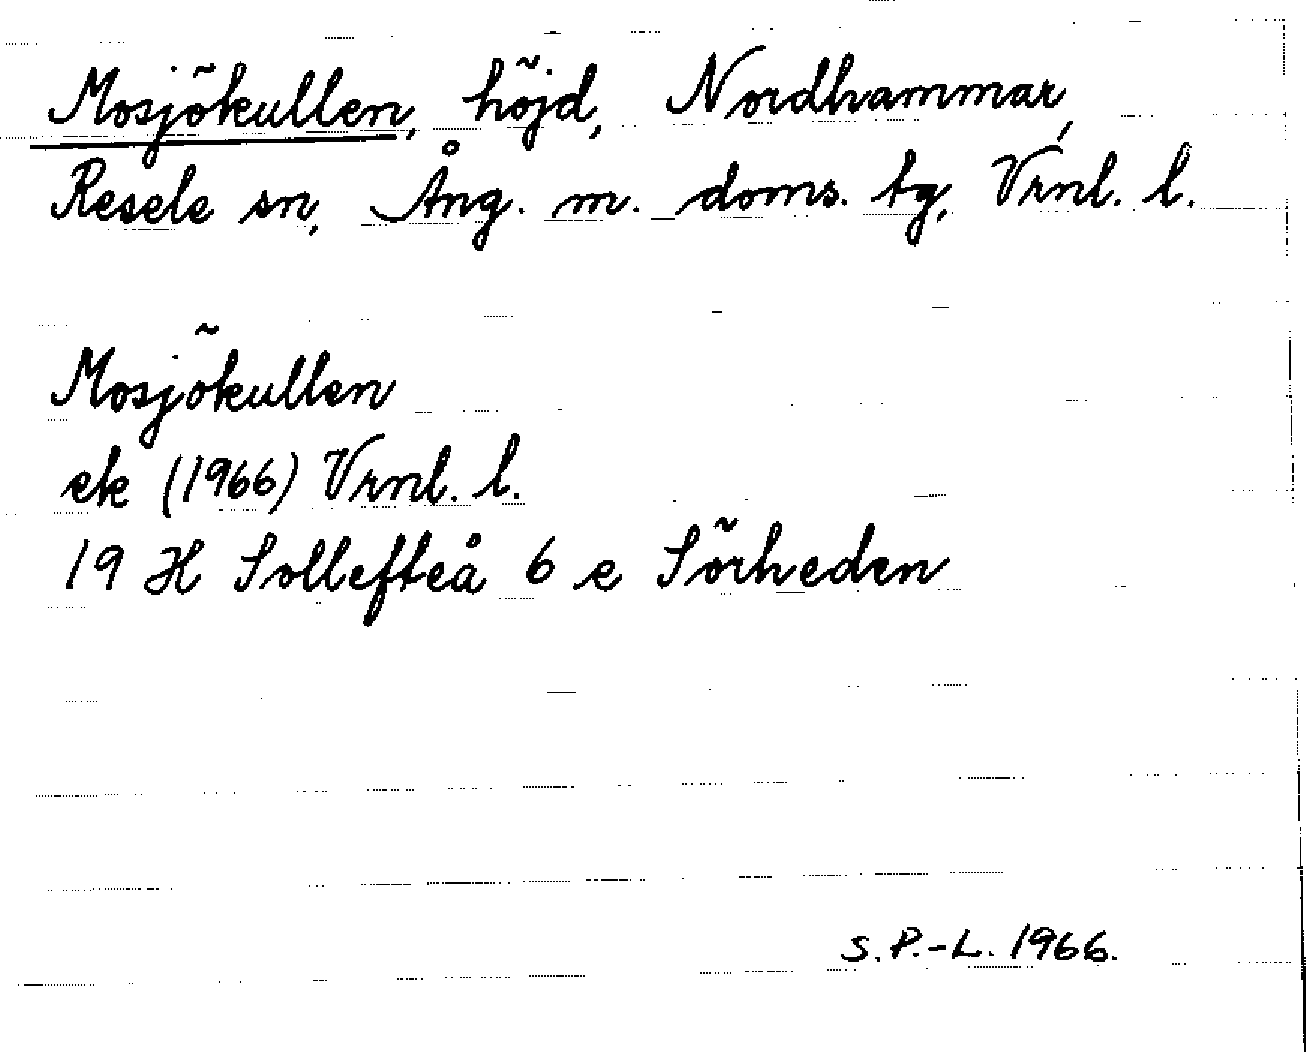 Mosjökullen, höjd, Nordhammar,
Resele sn, Ång. m. doms. tg, Vrnl. l.
Mosjökullen
ek (1966) Vrnl. l.
19 H Sollefteå 6 e Sörheden
S. P.-L. 1966.